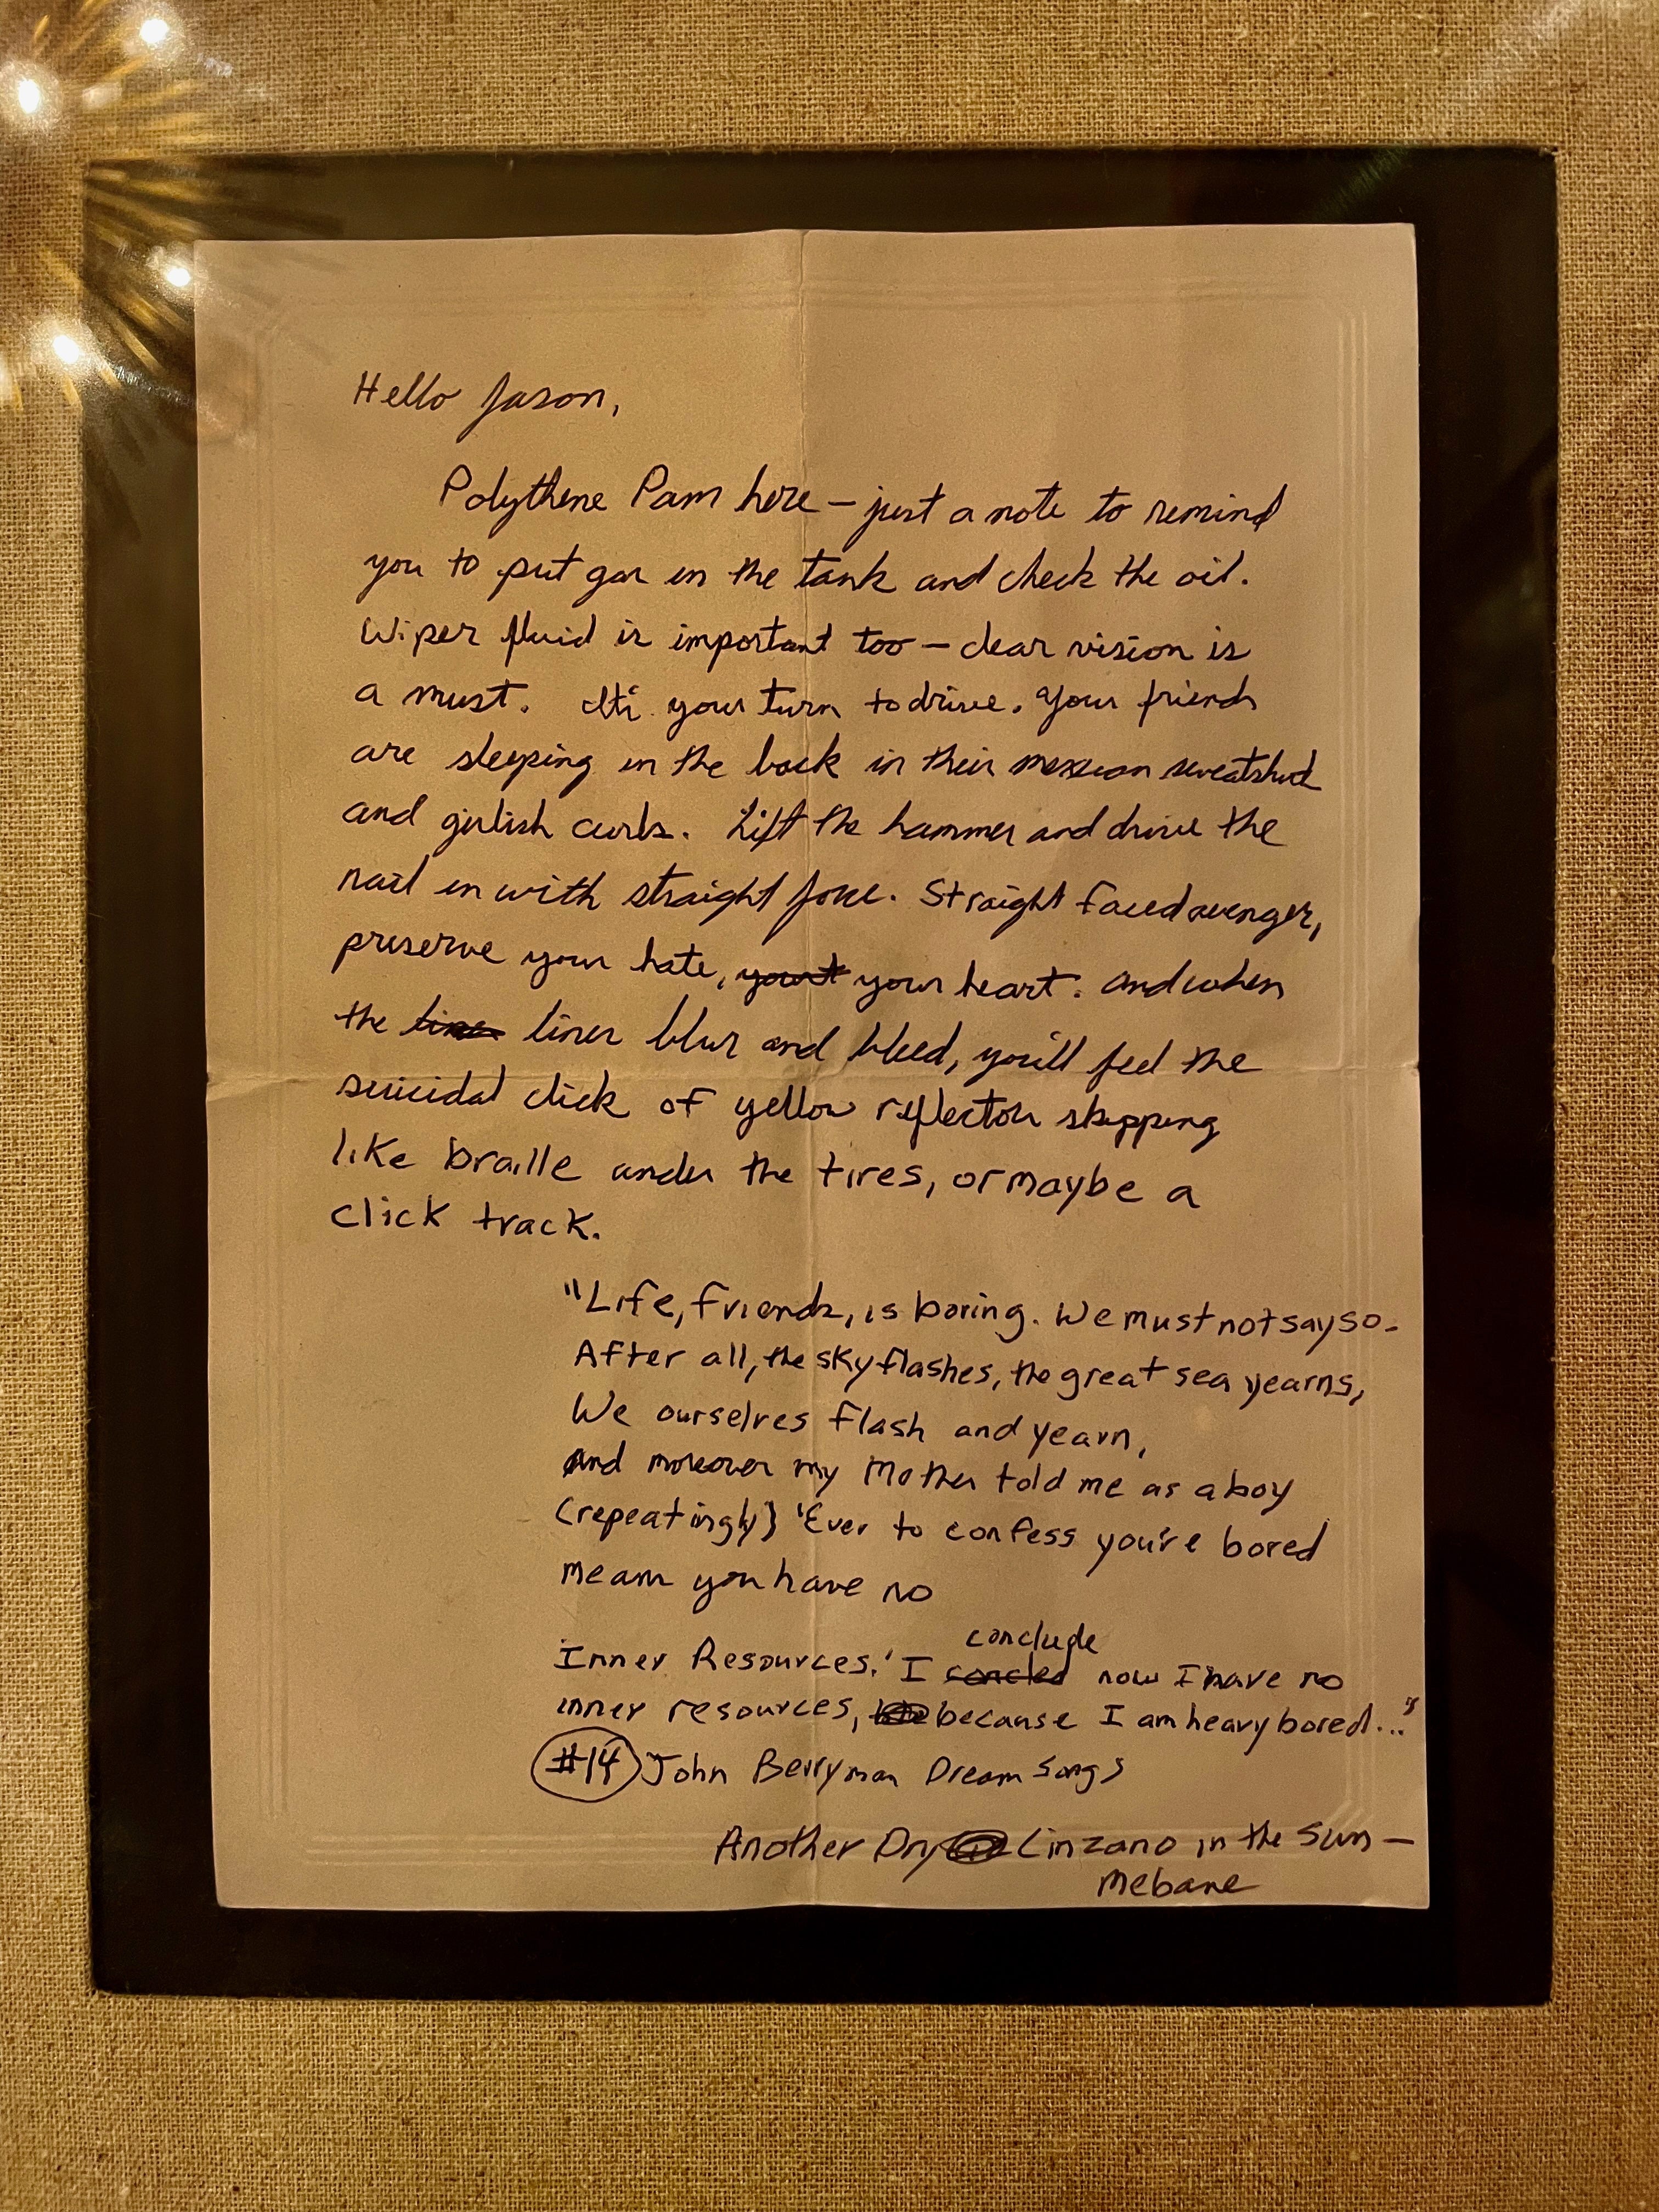 Hello Jason,
Polythene Pam here – just a note to remind
you to put gas in the tank and check the oil.
Wiper fluid is important too – clear vision is
a must. It's your turn to drive. Your friends
are sleeping in the back in their mexican sweatshirts
and girlish curls. Lift the hammer and drive the
nail in with straight force. Straight faced avenger,
preserve your hate, your heart. And when
the lines lines blur and bleed, you'll feel the
suicidal click of yellow reflectors skipping
like braille under the tires, or maybe a
click track.
"Life, friends, is boring. We must not say so.
After all, the sky flashes, the great sea yearns,
We ourselves flash and yearn,
And moreover my Mother told me as a boy
(repeatingly) 'Ever to confess you're bored
means you have no
conclude
Inner Resources.' I concled now I have no
inner resources, because I am heavy bored..."
#14 John Berryman Dream Songs
Another Dry Cinzano in the Sun –
Mebane